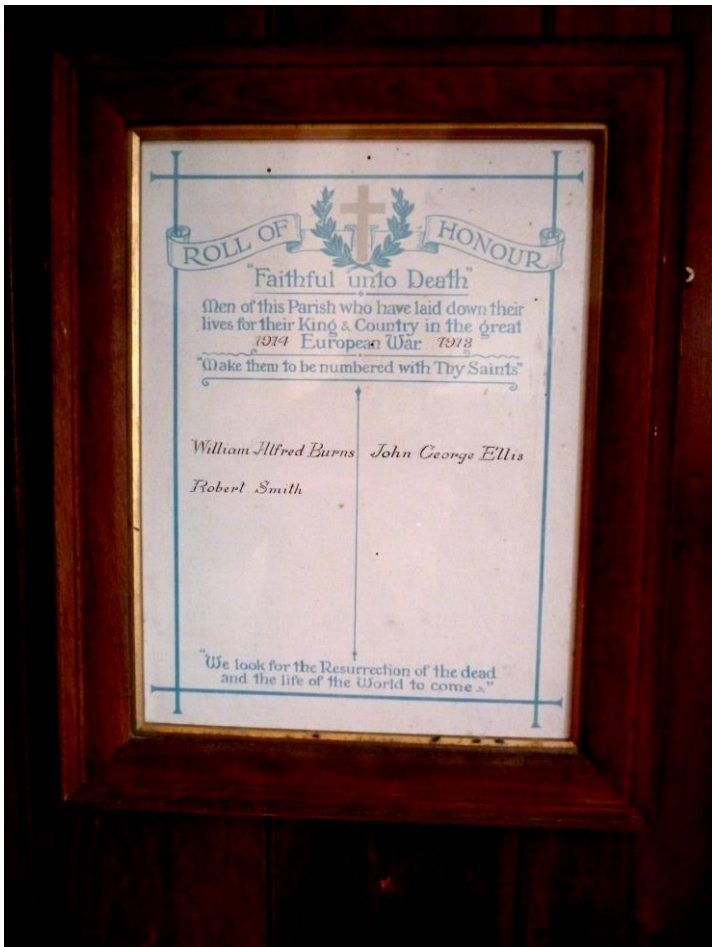 ROLL OF HONOUR
"Faithful unto Death"
Men of this Parish who have laid down their
lives for their King & Country in the great
1914 European War 1918
"Make them to be numbered with Thy Saints"
William Alfred Burns
Robert Smith
John George Ellis
"We look for the Resurrection of the dead
and the life of the World to come."